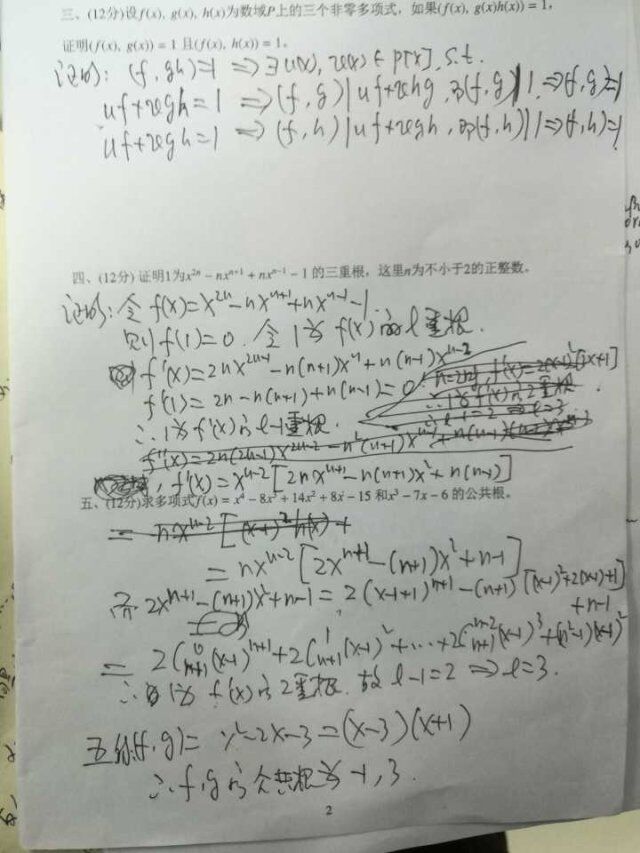 三、(12分)设f(x), g(x), h(x)为数域P上的三个非零多项式，如果(f(x), g(x)h(x)) = 1，
证明(f(x), g(x)) = 1 且(f(x), h(x)) = 1。
证明: (f, gh)=1 ⟹ ∃u(x), v(x) ∈ P[x], s.t.
uf+vgh=1 ⟹ (f, g) | uf+vhg, 即(f, g) | 1, ⟹ (f, g)=1
uf+vgh=1 ⟹ (f, h) | uf+vgh, 即(f, h) | 1 ⟹ (f, h)=1
四、(12分) 证明1为x²ⁿ − nxⁿ⁺¹ + nxⁿ⁻¹ − 1 的三重根，这里n为不小于2的正整数。
证明: 令 f(x)=x²ⁿ−nxⁿ⁺¹+nxⁿ⁻¹−1
则 f(1)=0. 令 1为 f(x) 的 l 重根.
f'(x)=2nx²ⁿ⁻¹−n(n+1)xⁿ+n(n−1)xⁿ⁻²
f'(1)=2n−n(n+1)+n(n−1)=0
∴ 1为 f'(x)的 l−1重根.
f'(x)=xⁿ⁻²[2nxⁿ⁺¹−n(n+1)x²+n(n−1)]
五、(12分)求多项式f(x) = x⁴ − 8x³ + 14x² + 8x − 15 和x³ − 7x − 6 的公共根。
= nxⁿ⁻²[2xⁿ⁺¹−(n+1)x²+n−1]
而 2xⁿ⁺¹−(n+1)x²+n−1=2(x−1+1)ⁿ⁺¹−(n+1)[(x−1)²+2(x−1)+1]
+n−1
= 2C⁰ₙ₊₁(x−1)ⁿ⁺¹+2C¹ₙ₊₁(x−1)²+⋯+2Cⁿ⁻²ₙ₊₁(x−1)³+(n²−1)(x−1)²
∴ 1为 f'(x)的2重根. 故 l−1=2 ⟹ l=3.
五 (f, g)= x²−2x−3=(x−3)(x+1)
∴ f, g的公共根为 −1, 3.
2